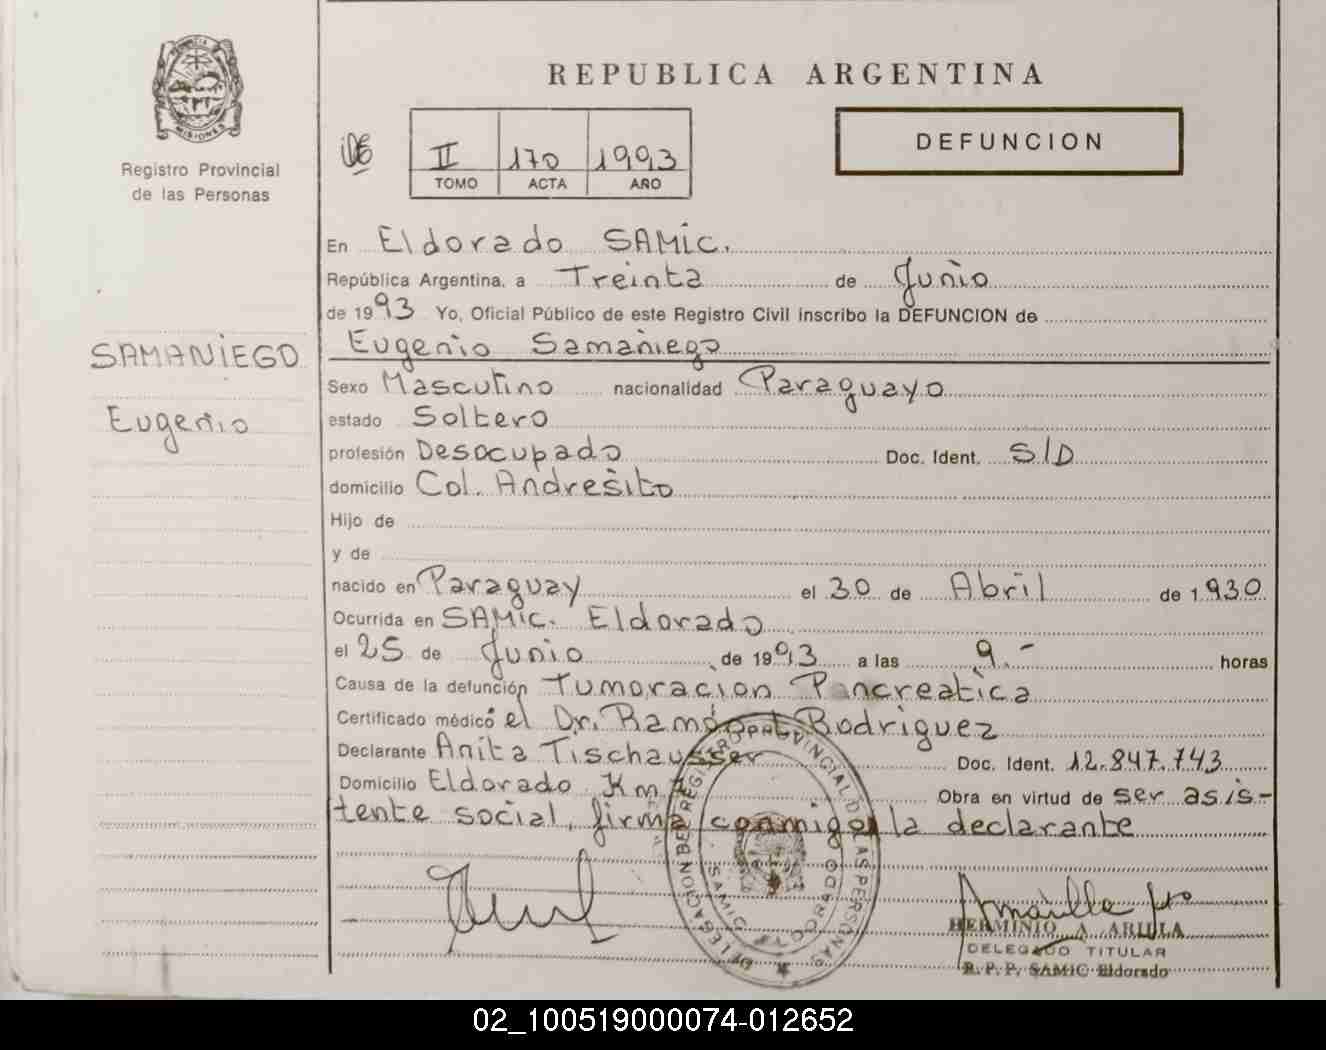 PROVINCIA DE MISIONES
Registro Provincial
de las Personas
REPUBLICA ARGENTINA
DEFUNCION
II 170 1993
TOMO ACTA AÑO
En Eldorado SAMic.
República Argentina, a Treinta de Junio
de 1993 Yo, Oficial Público de este Registro Civil inscribo la DEFUNCION de
Eugenio Samaniego
SAMANIEGO
Eugenio
Sexo Masculino nacionalidad Paraguayo
estado Soltero
profesión Desocupado Doc. Ident. S/D
domicilio Col. Andresito
Hijo de
y de
nacido en Paraguay el 30 de Abril de 1.930
Ocurrida en SAMic. Eldorado
el 25 de Junio de 1993 a las 9.- horas
Causa de la defunción Tumoracion Pancreatica
Certificado médico el Dr. Ramón Rodriguez
Declarante Anita Tischausser Doc. Ident. 12.847.743
Domicilio Eldorado Km Obra en virtud de ser asis-
tente social, firma conmigo la declarante
DELEGACION DEL REGISTRO PROVINCIAL DE LAS PERSONAS
SAMIC ELDORADO
HERMINIO A. ARILLA
DELEGADO TITULAR
R. P. P. SAMIC Eldorado
02_100519000074-012652